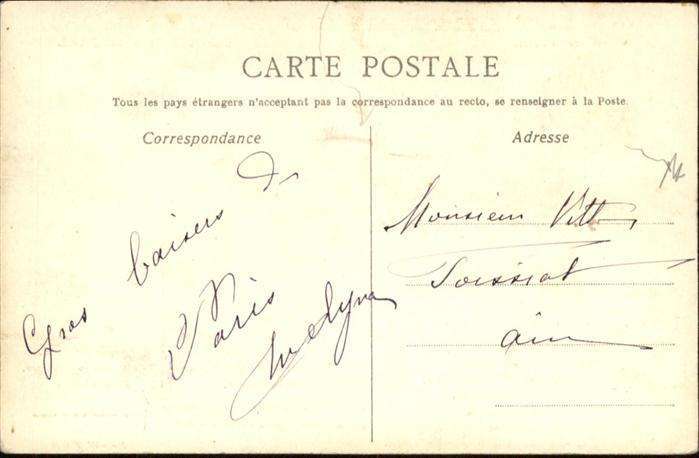 CARTE POSTALE
Tous les pays étrangers n'acceptant pas la correspondance au recto, se renseigner à la Poste.
Correspondance
Gros baisers de
Paris
Evelyne
Adresse
Monsieur
Foissiat
Ain